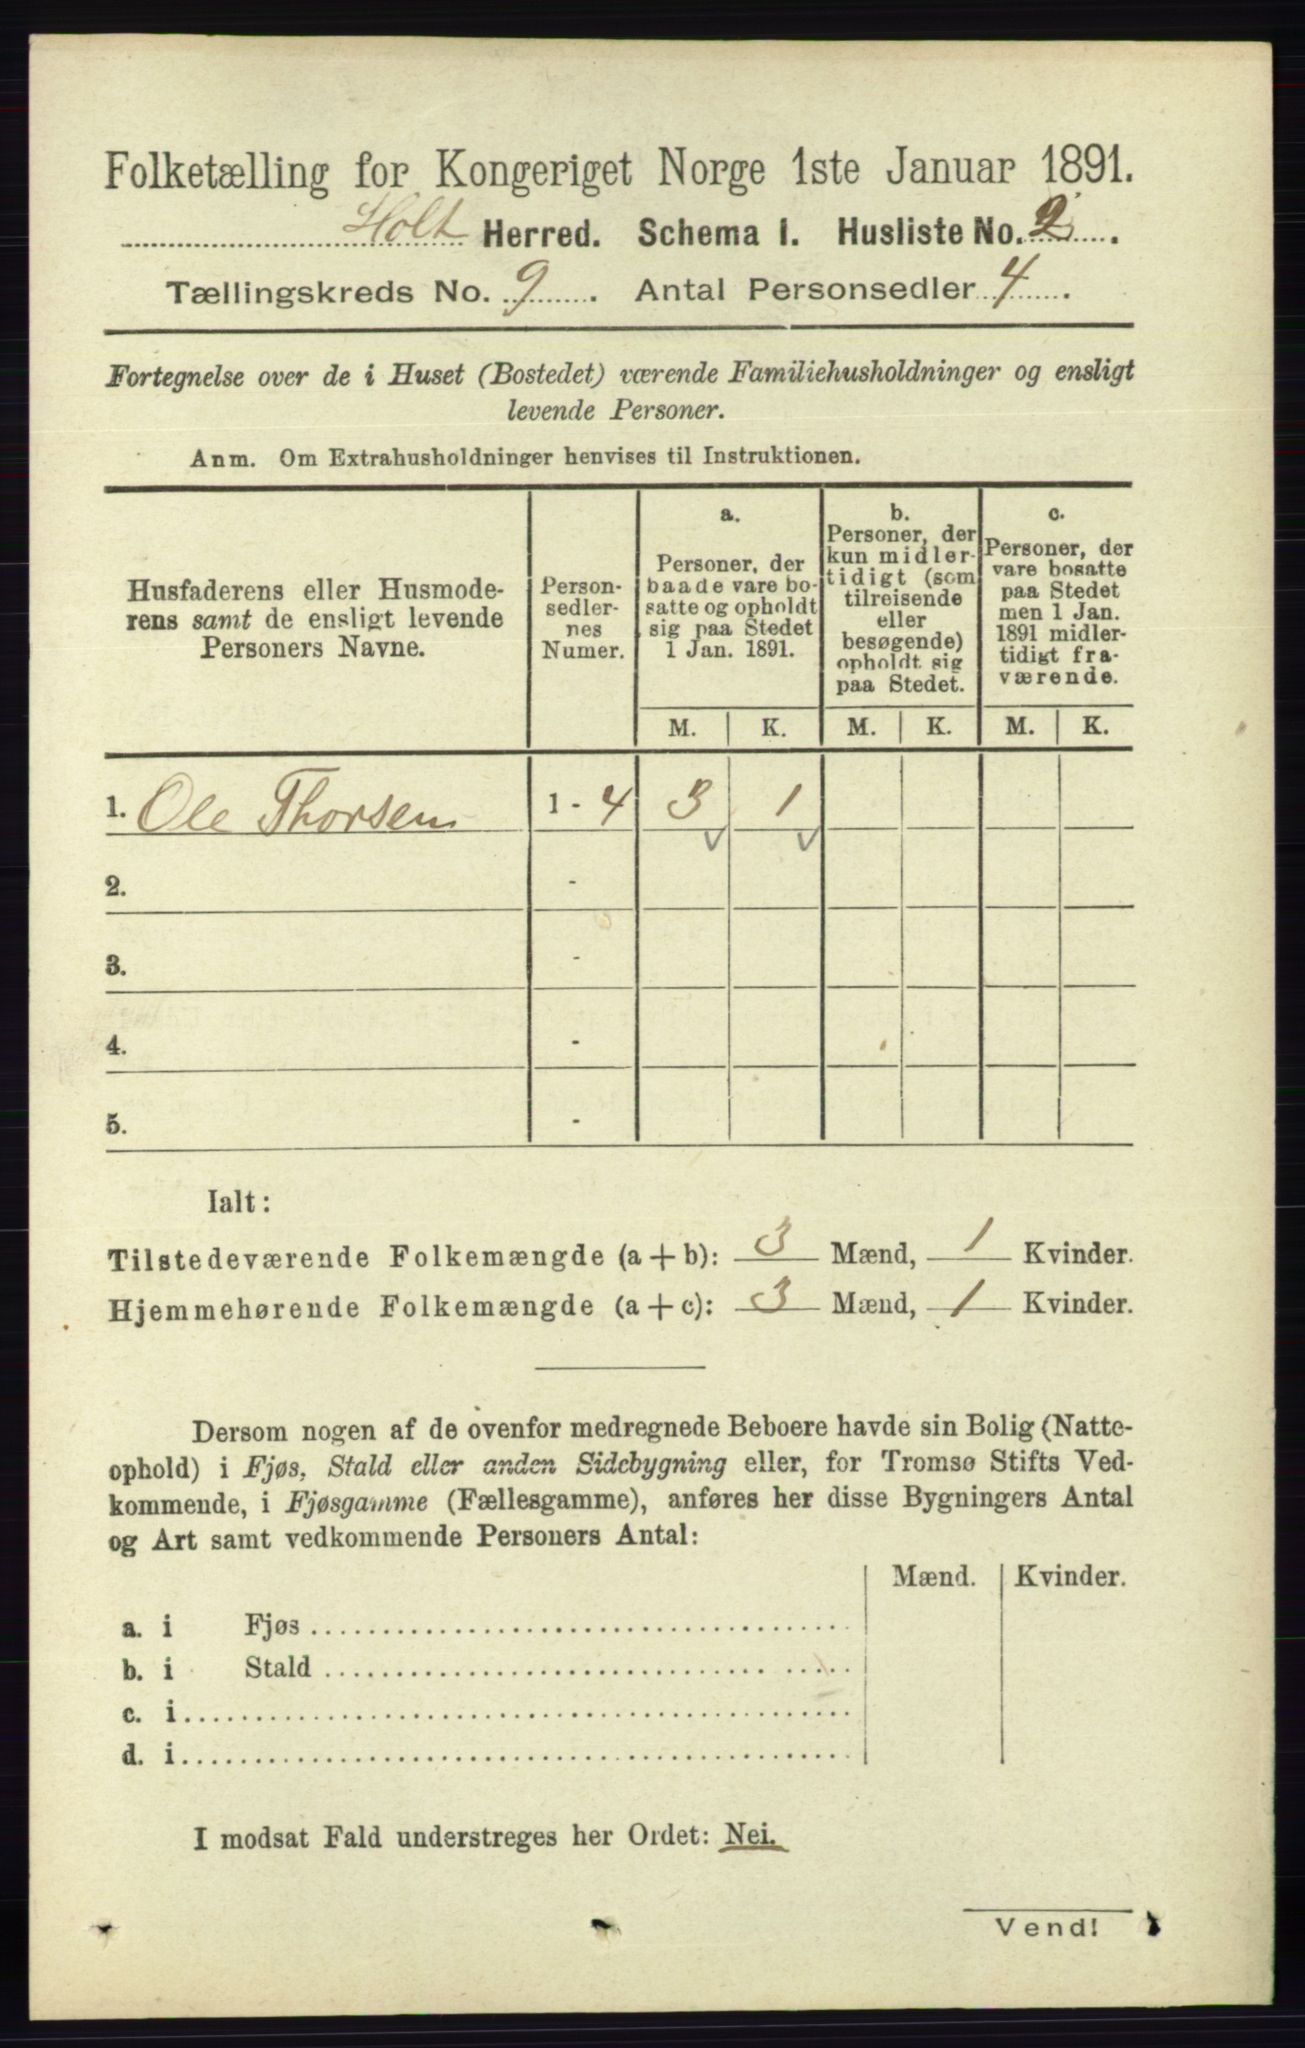 Folketælling for Kongeriget Norge 1ste Januar 1891.
Holt Herred. Schema I. Husliste No. 2.
Tællingskreds No. 9. Antal Personsedler 4.
Fortegnelse over de i Huset (Bostedet) værende Familiehusholdninger og ensligt
levende Personer.
Anm. Om Extrahusholdninger henvises til Instruktionen.
Husfaderens eller Husmode-
rens samt de ensligt levende
Personers Navne.
Person-
sedler-
nes
Numer.
a.
Personer, der
baade vare bo-
satte og opholdt
sig paa Stedet
1 Jan. 1891.
b.
Personer, der
kun midler-
tidigt (som
tilreisende
eller
besøgende)
opholdt sig
paa Stedet.
c.
Personer, der
vare bosatte
paa Stedet
men 1 Jan.
1891 midler-
tidigt fra-
værende.
M. K. M. K. M. K.
1. Ole Thorsen 1 - 4 3 1
2. -
3. -
4. -
5. -
Ialt:
Tilstedeværende Folkemængde (a + b): 3 Mænd, 1 Kvinder.
Hjemmehørende Folkemængde (a + c): 3 Mænd, 1 Kvinder.
Dersom nogen af de ovenfor medregnede Beboere havde sin Bolig (Natte-
ophold) i Fjøs, Stald eller anden Sidebygning eller, for Tromsø Stifts Ved-
kommende, i Fjøsgamme (Fællesgamme), anføres her disse Bygningers Antal
og Art samt vedkommende Personers Antal:
Mænd. Kvinder.
a. i Fjøs
b. i Stald
c. i
d. i
I modsat Fald understreges her Ordet: Nei.
Vend!